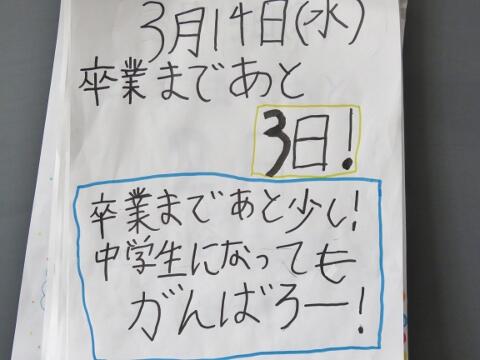 3月14日(水)
卒業まであと
3日!
卒業まであと少し!
中学生になっても
がんばろー!